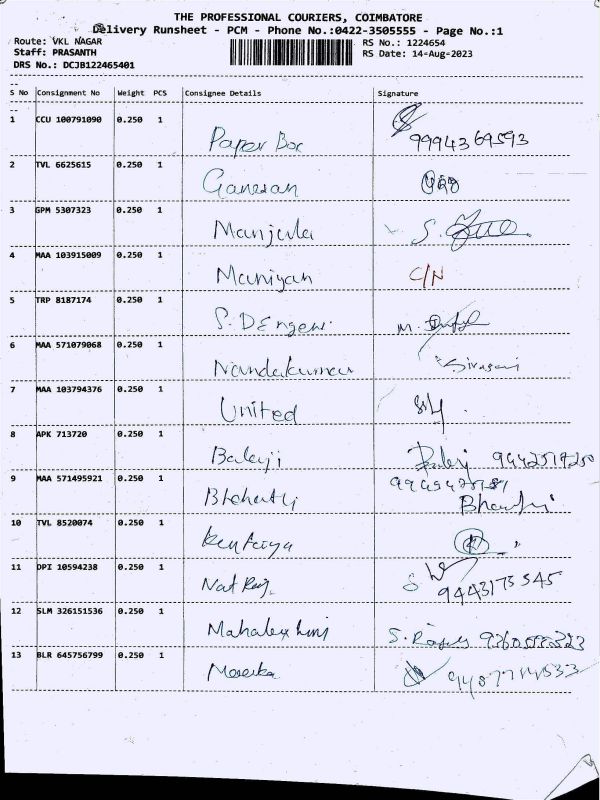 THE PROFESSIONAL COURIERS, COIMBATORE
Delivery Runsheet - PCM - Phone No.:0422-3505555 - Page No.:1
Route: VKL NAGAR RS No.: 1224654
Staff: PRASANTH RS Date: 14-Aug-2023
DRS No.: DCJB122465401
S No Consignment No Weight PCS Consignee Details Signature
1 CCU 100791090 0.250 1
Paper Box 9994369593
2 TVL 6625615 0.250 1
Ganesan
3 GPM 5307323 0.250 1
Manjula S.
4 MAA 103915009 0.250 1
Maniyan C/N
5 TRP 8187174 0.250 1
S. M.
6 MAA 571079068 0.250 1
Nandakumar Sivasami
7 MAA 103794376 0.250 1
United
8 APK 713720 0.250 1
Balaji
9 MAA 571495921 0.250 1
Bharathi
10 TVL 8520074 0.250 1
11 DPI 10594238 0.250 1
Nat Raj S
9443175545
12 SLM 326151536 0.250 1
S.
13 BLR 645756799 0.250 1